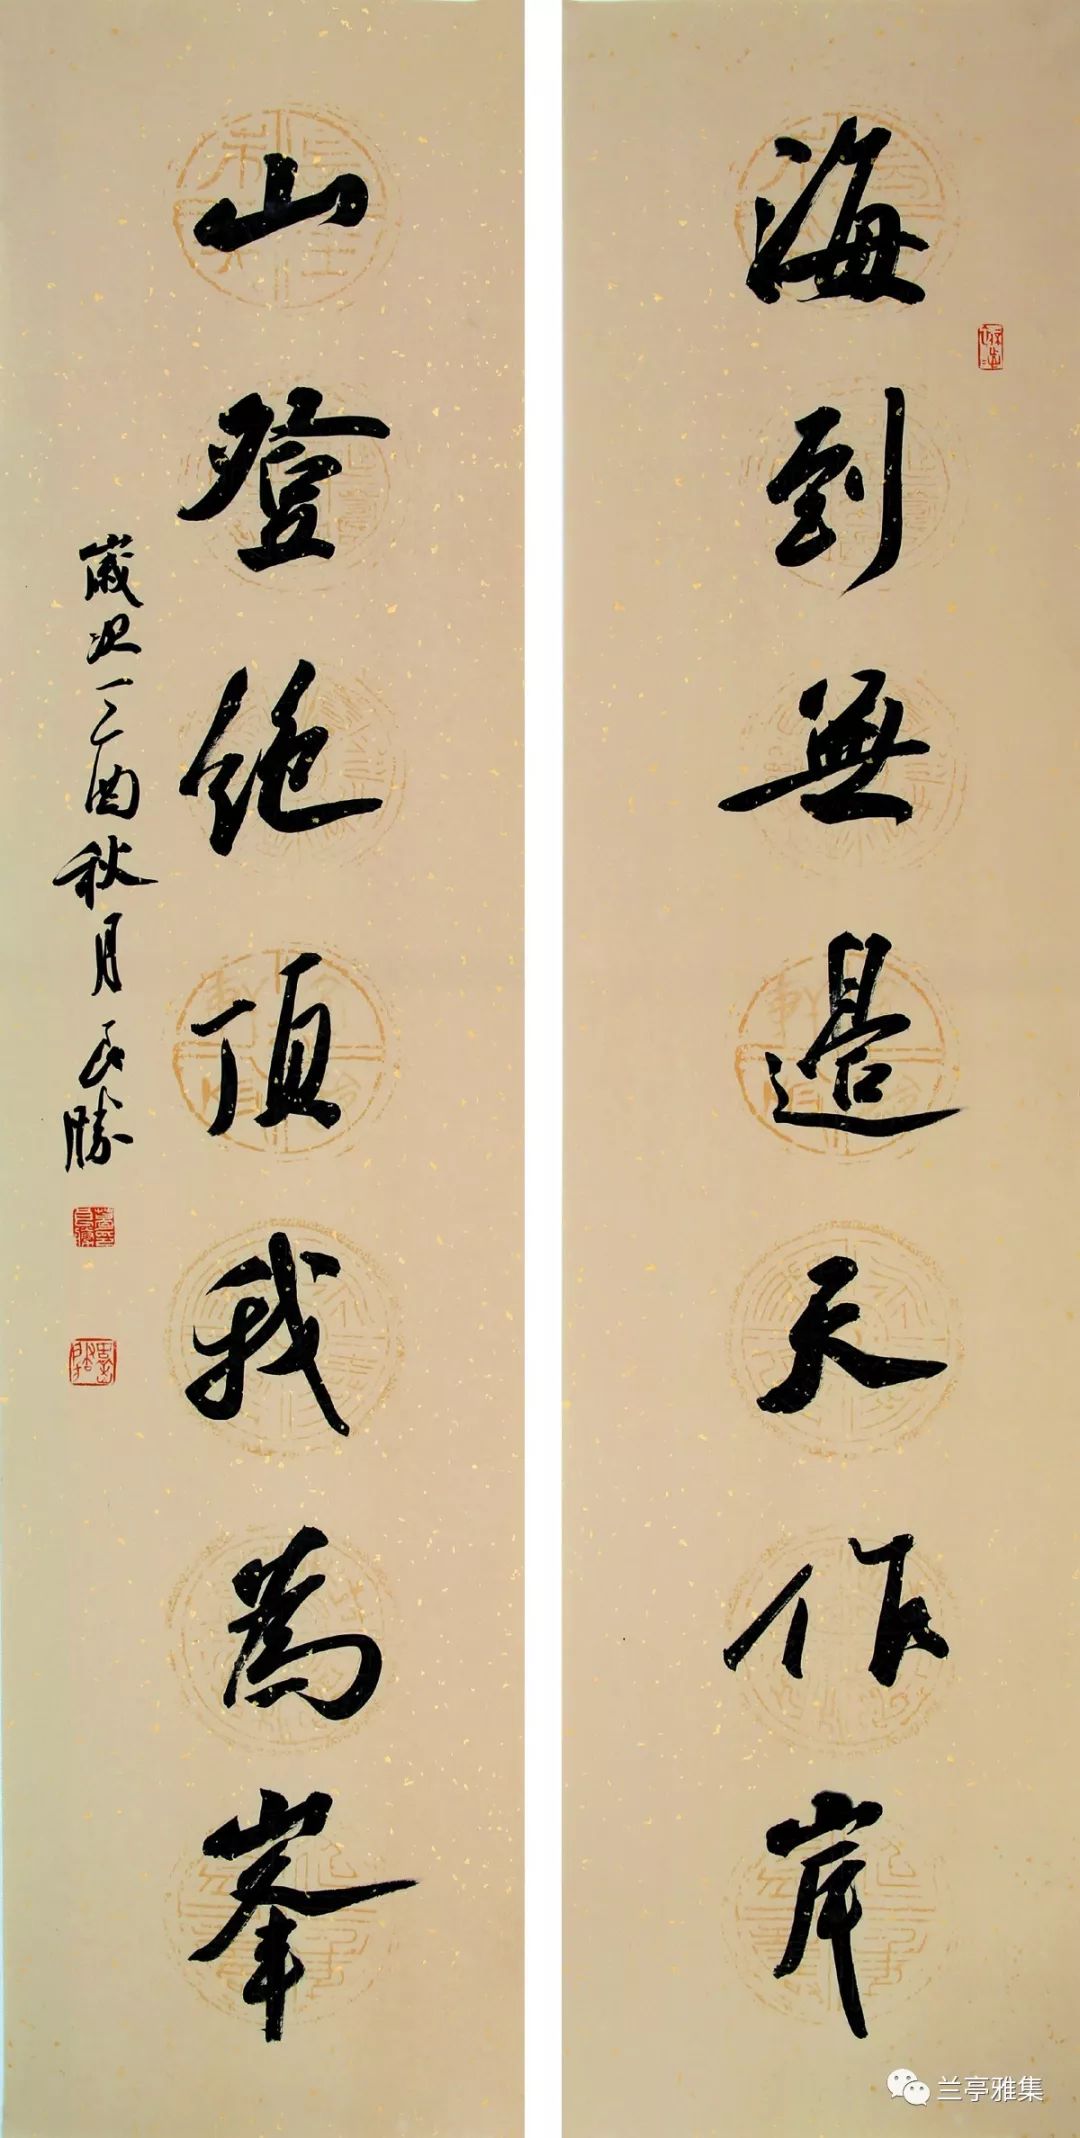 海到無邊天作岸
山登絕頂我為峯
歲次丁酉秋月勝
兰亭雅集